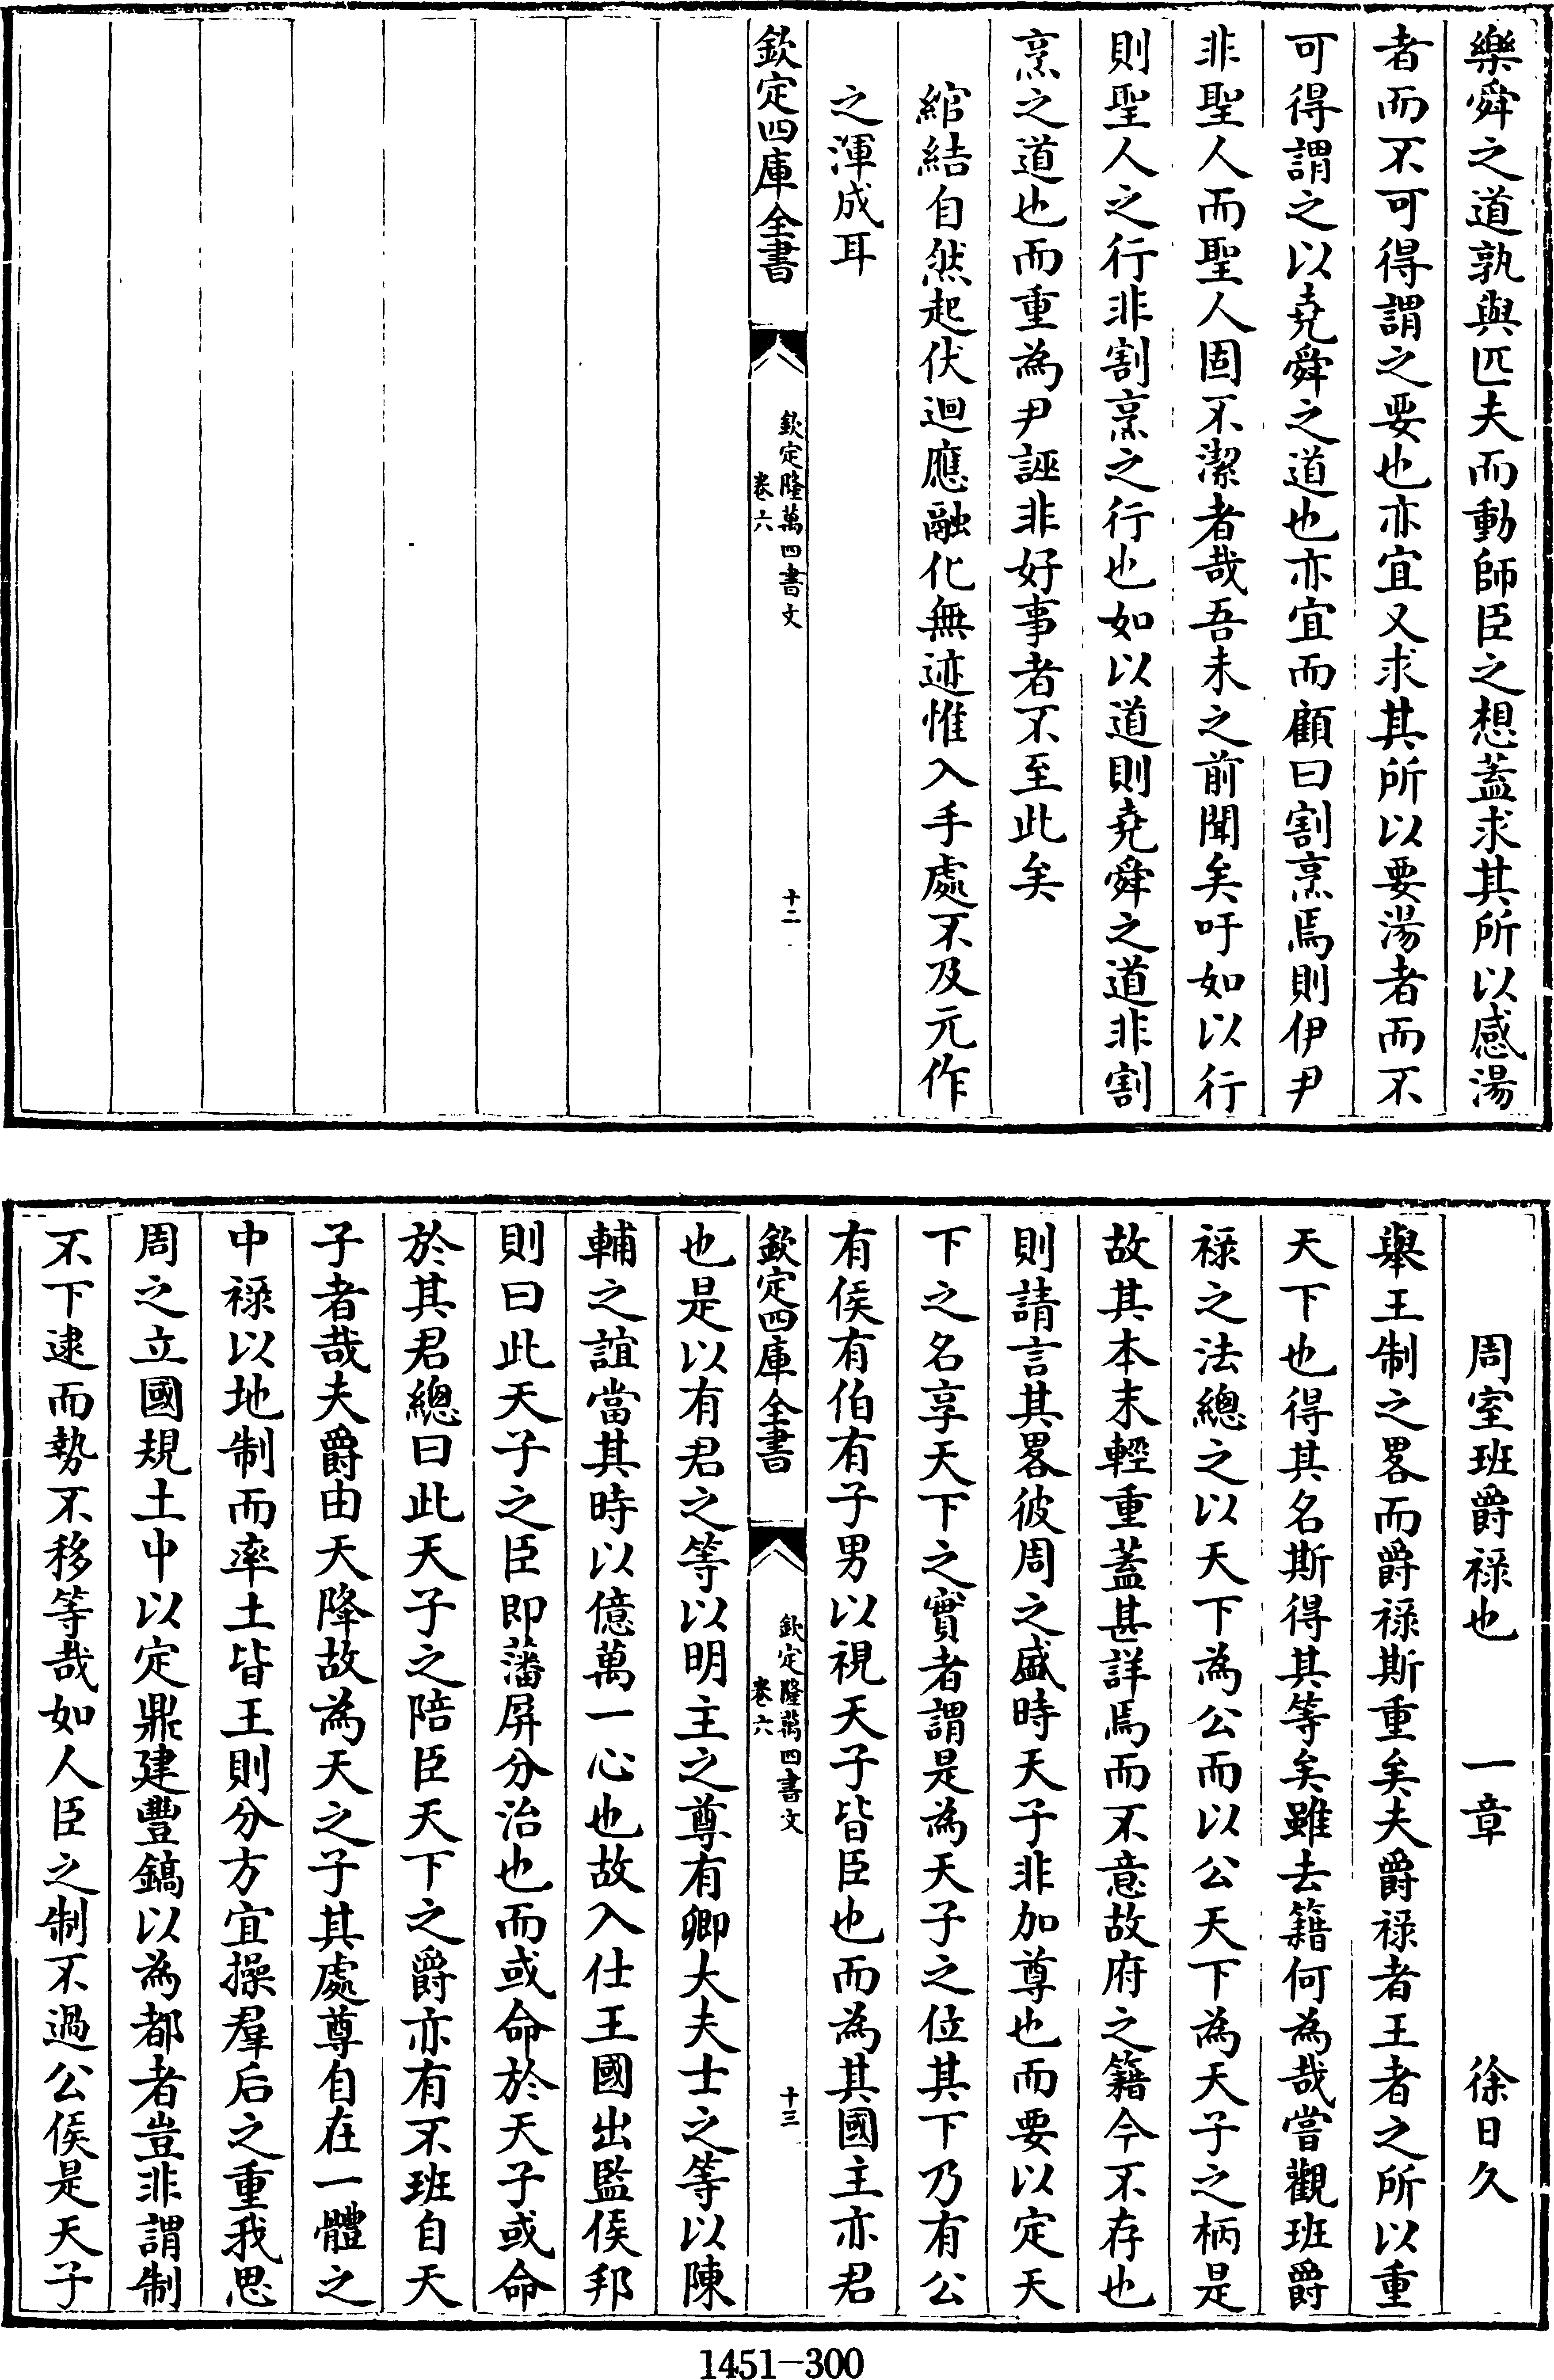 樂舜之道孰與匹夫而動師臣之想蓋求其所以感湯
者而不可得謂之要也亦宜又求其所以要湯者而不
可得謂之以堯舜之道也亦宜而顧曰割烹焉則伊尹
非聖人而聖人固不潔者哉吾未之前聞矣吁如以行
則聖人之行非割烹之行也如以道則堯舜之道非割
烹之道也而重為尹誣非好事者不至此矣
綰結自然起伏迴應融化無迹惟入手處不及元作
之渾成耳
欽定四庫全書
欽定隆萬四書文
卷六
十二
周室班爵祿也 一章 徐日久
舉王制之畧而爵祿斯重矣夫爵祿者王者之所以重
天下也得其名斯得其等矣雖去籍何為哉嘗觀班爵
祿之法總之以天下為公而以公天下為天子之柄是
故其本末輕重蓋甚詳焉而不意故府之籍今不存也
則請言其畧彼周之盛時天子非加尊也而要以定天
下之名享天下之實者謂是為天子之位其下乃有公
有侯有伯有子男以視天子皆臣也而為其國主亦君
欽定四庫全書
欽定隆萬四書文
卷六
十三
也是以有君之等以明主之尊有卿大夫士之等以陳
輔之誼當其時以億萬一心也故入仕王國出監侯邦
則曰此天子之臣即藩屏分治也而或命於天子或命
於其君總曰此天子之陪臣天下之爵亦有不班自天
子者哉夫爵由天降故為天之子其處尊自在一體之
中祿以地制而率土皆王則分方宜操羣后之重我思
周之立國規土中以定鼎建豐鎬以為都者豈非謂制
不下逮而勢不移等哉如人臣之制不過公侯是天子
1451-300